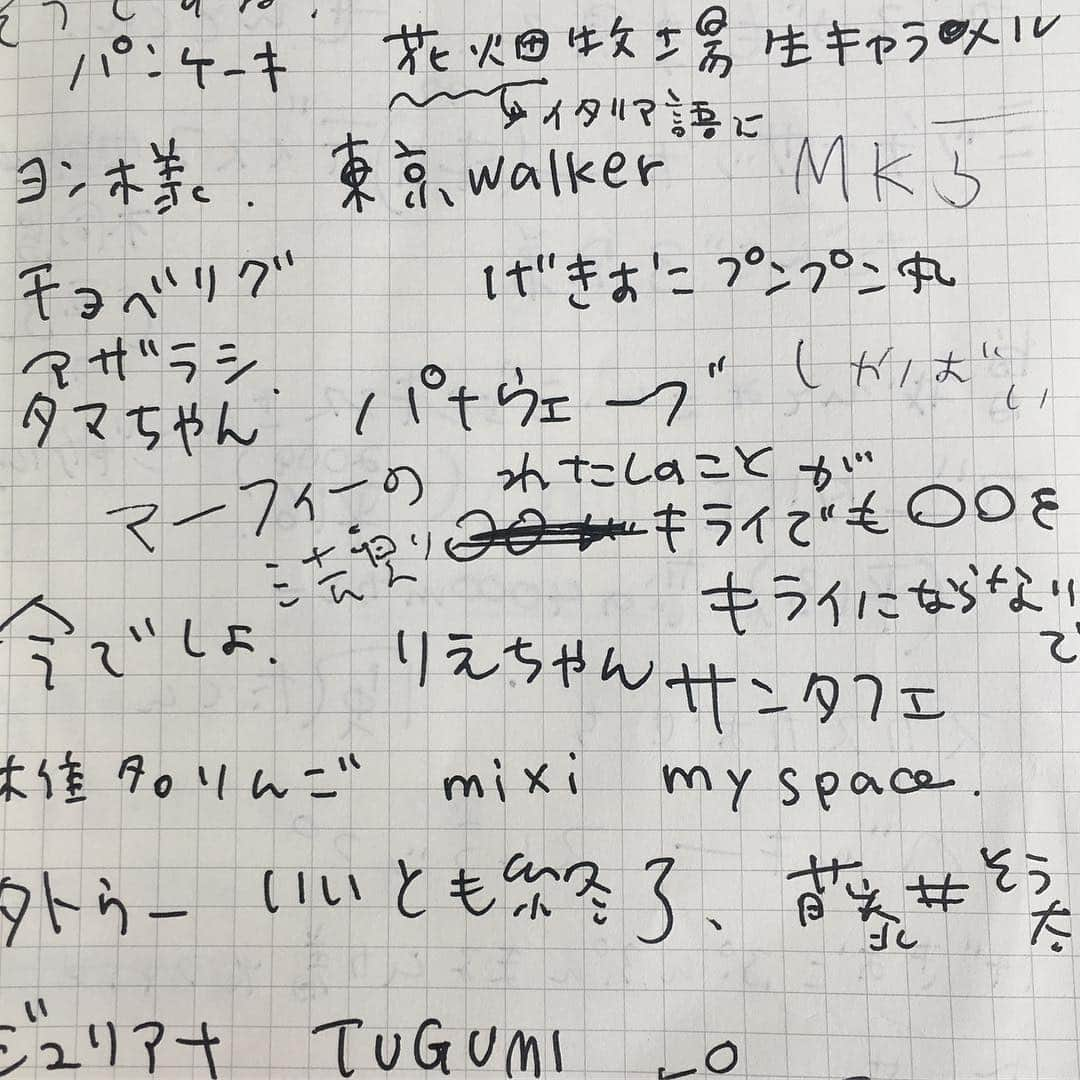 パンケーキ 花畑牧場 生キャラメル
イタリア語に
ヨン様. 東京walker MK5
チョベリグ げきおこプンプン丸
アザラシ.
タマちゃん パナウェーブ
マーフィーの わたしのことが
キライでも〇〇を
キライにならないで
今でしょ. りえちゃん サンタフェ
タロりんご mixi my space.
タトゥー いいとも終了、 そうた
ジュリアナ TUGUMI